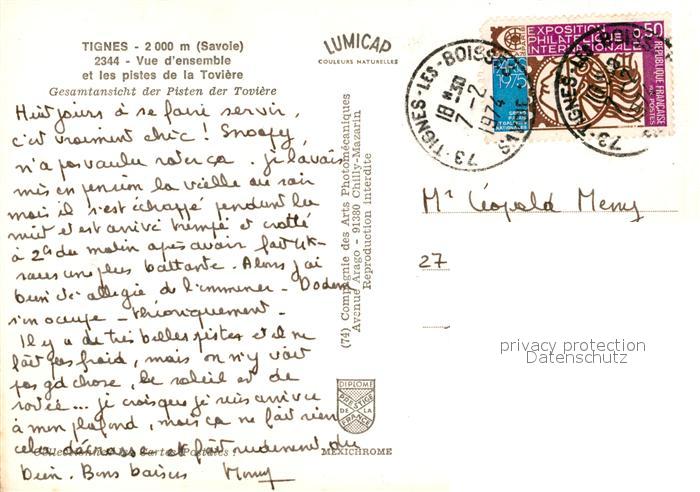 TIGNES - 2 000 m (Savoie)
2344 - Vue d'ensemble
et les pistes de la Tovière
Gesamtansicht der Pisten der Tovière
LUMICAP
COULEURS NATURELLES
Huit jours à se faire servir,
c'est vraiment chic ! Snoopy,
n'a pas voulu rater ça. je l'avais
mis en pension la vielle au soir
mais il s'est échappé pendant la
nuit et est arrivé trempé et crotté
à 2h du matin après avoir fait 4k
sous une pluie battante. Alors j'ai
bien été obligée de l'emmener.
s'en occupe - théoriquement.
Il y a de très belles pistes et il ne
fait pas froid, mais on n'y voit
pas gd chose, le soleil est de
sortie... je crois que je suis arrivée
à mon plafond, mais ça ne fait rien
cela et fait rudement du
bien. Bons baisers
(74) Compagnie des Arts Photomécaniques
Avenue Arago - 91380 Chilly-Mazarin
Reproduction interdite
DIPLOME
PRESTIGE
DE LA
FRANCE
MEXICHROME
Collectionnez les Cartes Postales
73 - TIGNES-LES-BOISSES
SAVOIE
18 H 30
7 - 2
1974
EXPOSITION
PHILATELIQUE
INTERNATIONALE
0,50
REPUBLIQUE FRANÇAISE
POSTES
1975
GRAND
PALAIS
GALERIES
NATIONALES
73 - TIGNES-LES-BOISSES
Mr Léopold Meny
27
privacy protection
Datenschutz